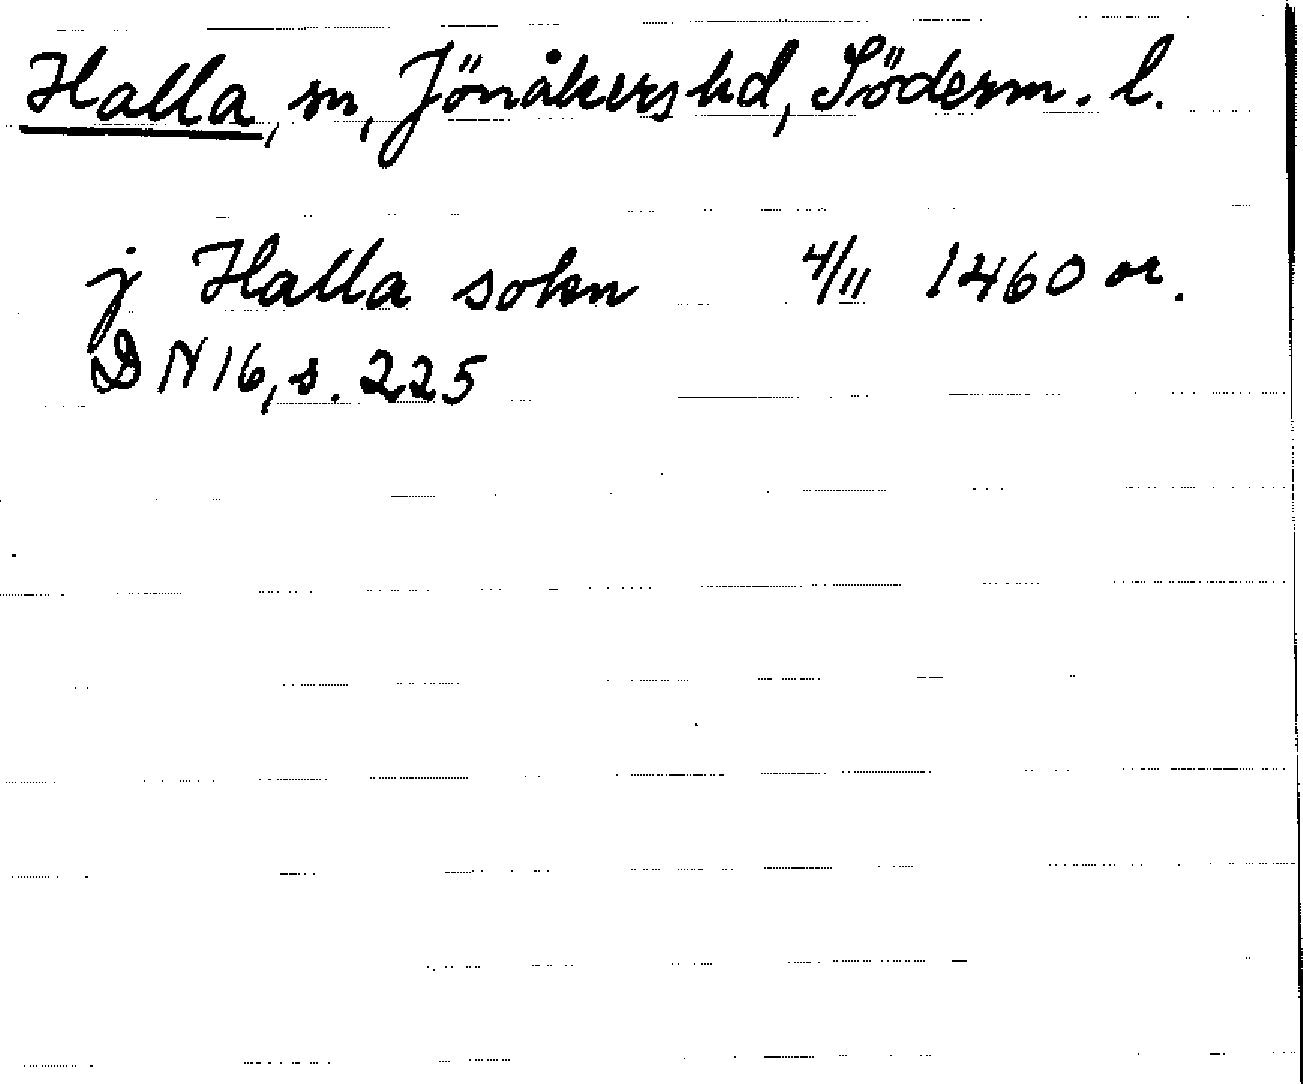 Halla, sn, Jönåkers hd, Söderm. l.
j Halla sokn 4/11 1460 or.
DN 16, s. 225